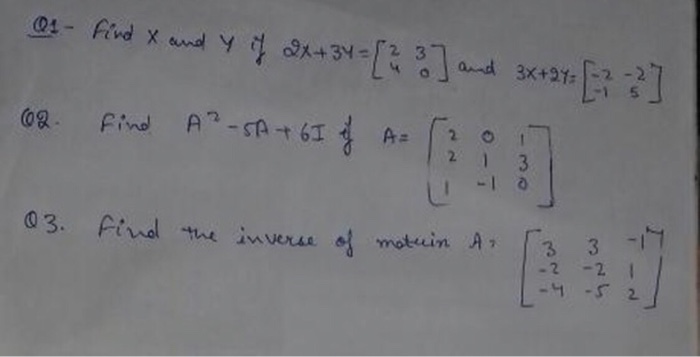 Q1- Find X and Y if 2X+3Y=[2 3 and 3X+2Y=[-2 -2
4 0] -1 5]
Q2. Find A²-5A+6I if A= [2 0 1
2 1 3
1 -1 0]
Q3. Find the inverse of matuin A= [3 3 -1
-2 -2 1
-4 -5 2]